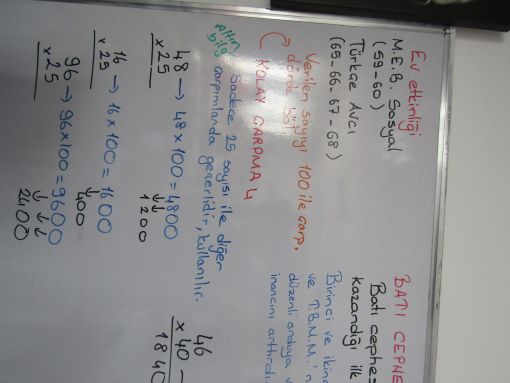 Ev etkinliği
M.E.B. Sosyal
(59-60)
Türkçe Avcı
(65-66-67-68)
Verilen sayıyı 100 ile çarp,
dörde böl.
KOLAY ÇARPMA 4
Altın bilgi
Sadece 25 sayısı ile diğer
çarpımlarda geçerlidir, kullanılır.
48 → 48x100 = 4800
x 25
1200
16 → 16x100 = 1600
x 25
400
96 → 96x100 = 9600
x 25
2400
BATI CEPHE
Batı cephes
kazandığı ilk
Birinci ve ikinc
ve T.B.M.M.'n
düzenli orduya v
inancını arttırdı
46
x 40
1840